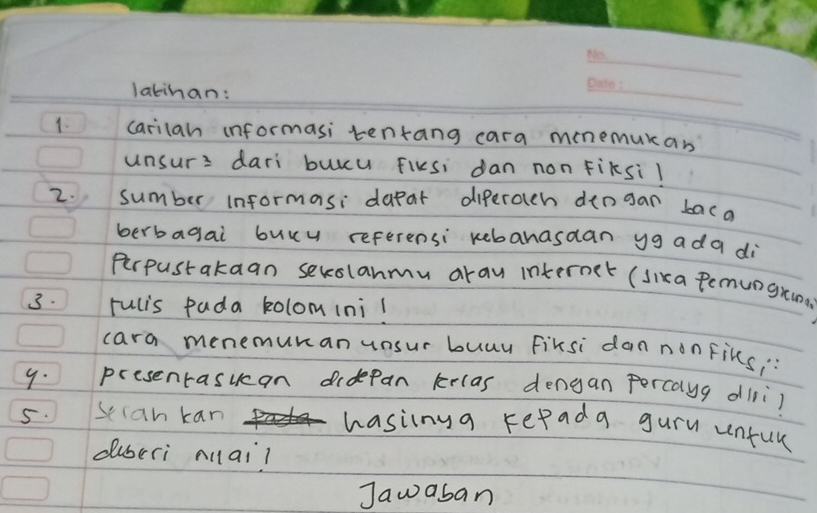 No.
Date:
latihan:
1. carilah informasi tentang cara menemukan
unsur² dari buku fiksi dan non fiksi!
2. sumber informasi dapat diperoleh dengan baca
berbagai buku referensi kebahasaan yg ada di
perpustakaan sekolahmu atau internet (jika pemungkinan)
3. tulis pada kolom ini!
cara menemukan unsur buku fiksi dan non fiksi:
4. presentasikan didepan kelas dengan percaya diri!
5. serahkan hasilnya kepada guru untuk
diberi nilai!
Jawaban